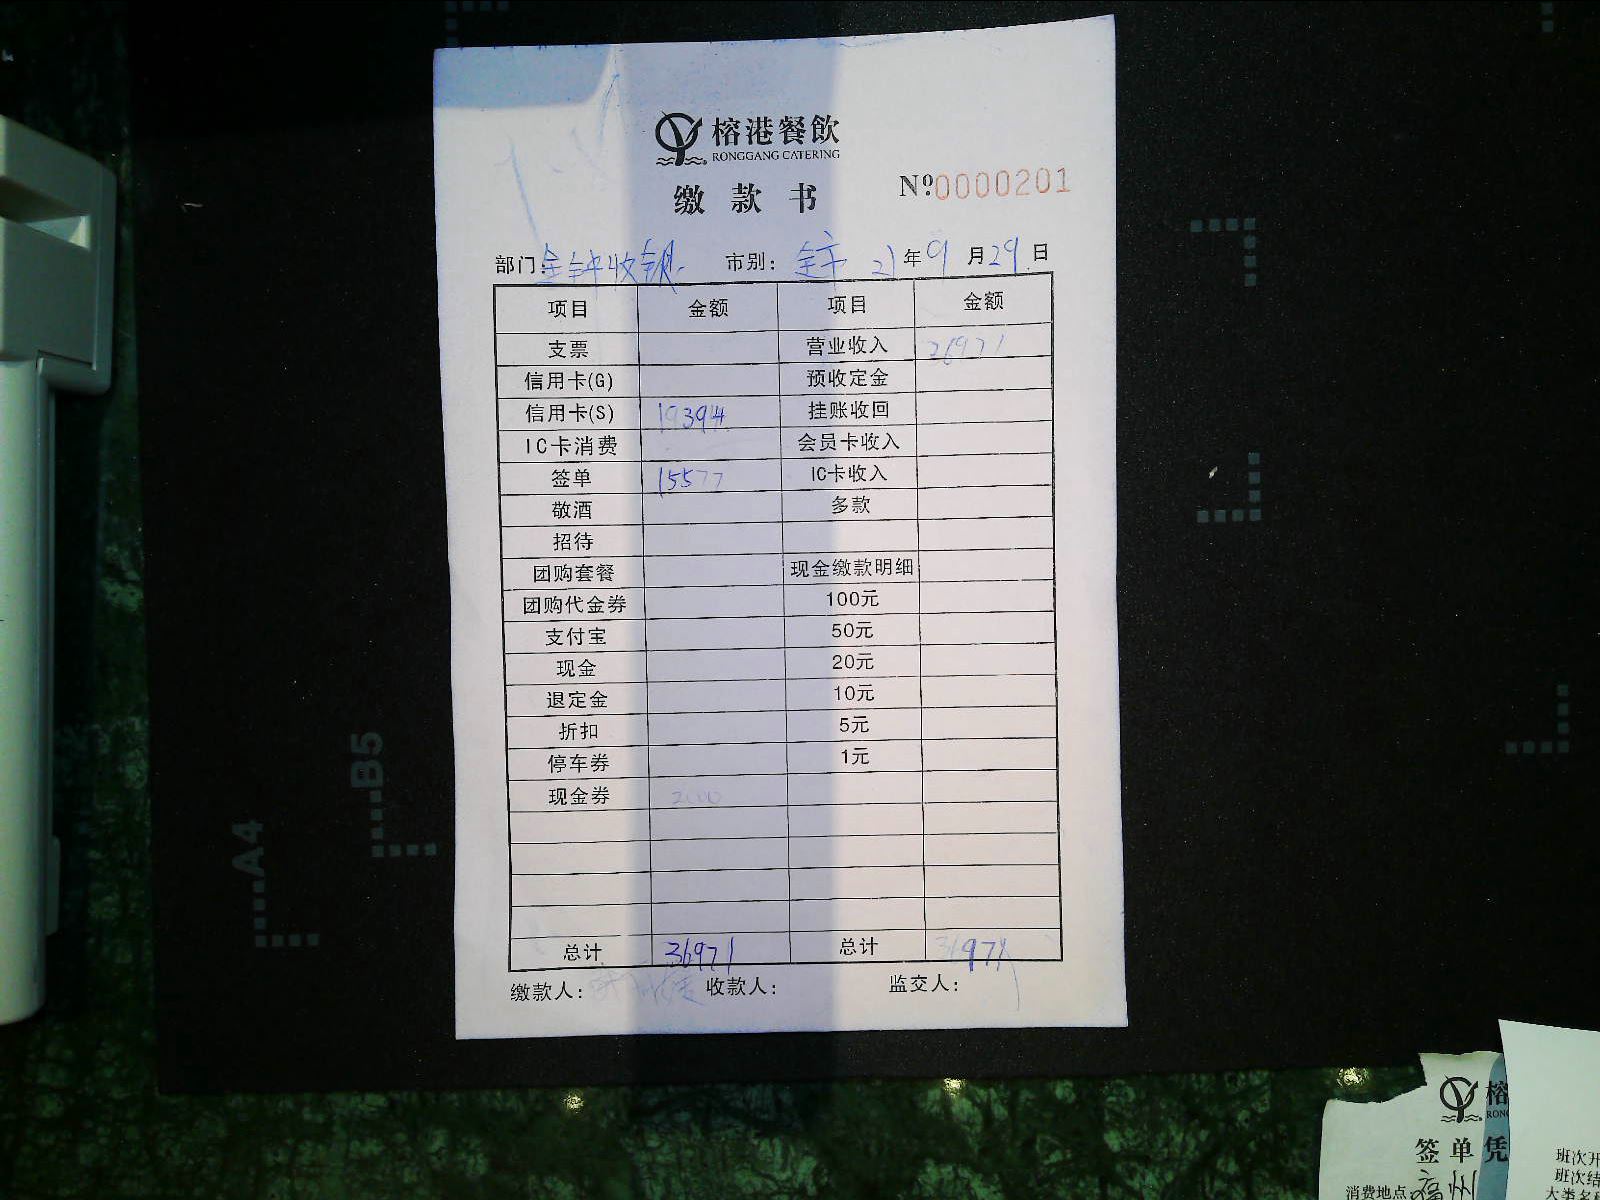 榕港餐飲
RONGGANG CATERING
缴款书
Nº:0000201
部门:金钟收银 市别: 21年9月29日
项目 金额 项目 金额
支票 营业收入 36971
信用卡(G) 预收定金
信用卡(S) 19394 挂账收回
IC卡消费 会员卡收入
签单 15577 IC卡收入
敬酒 多款
招待
团购套餐 现金缴款明细
团购代金券 100元
支付宝 50元
现金 20元
退定金 10元
折扣 5元
停车券 1元
现金券 2000
总计 36971 总计 36971
缴款人: 收款人: 监交人:
A4
B5
榕
RONG
签单凭
消费地点 福州
班次开
班次结